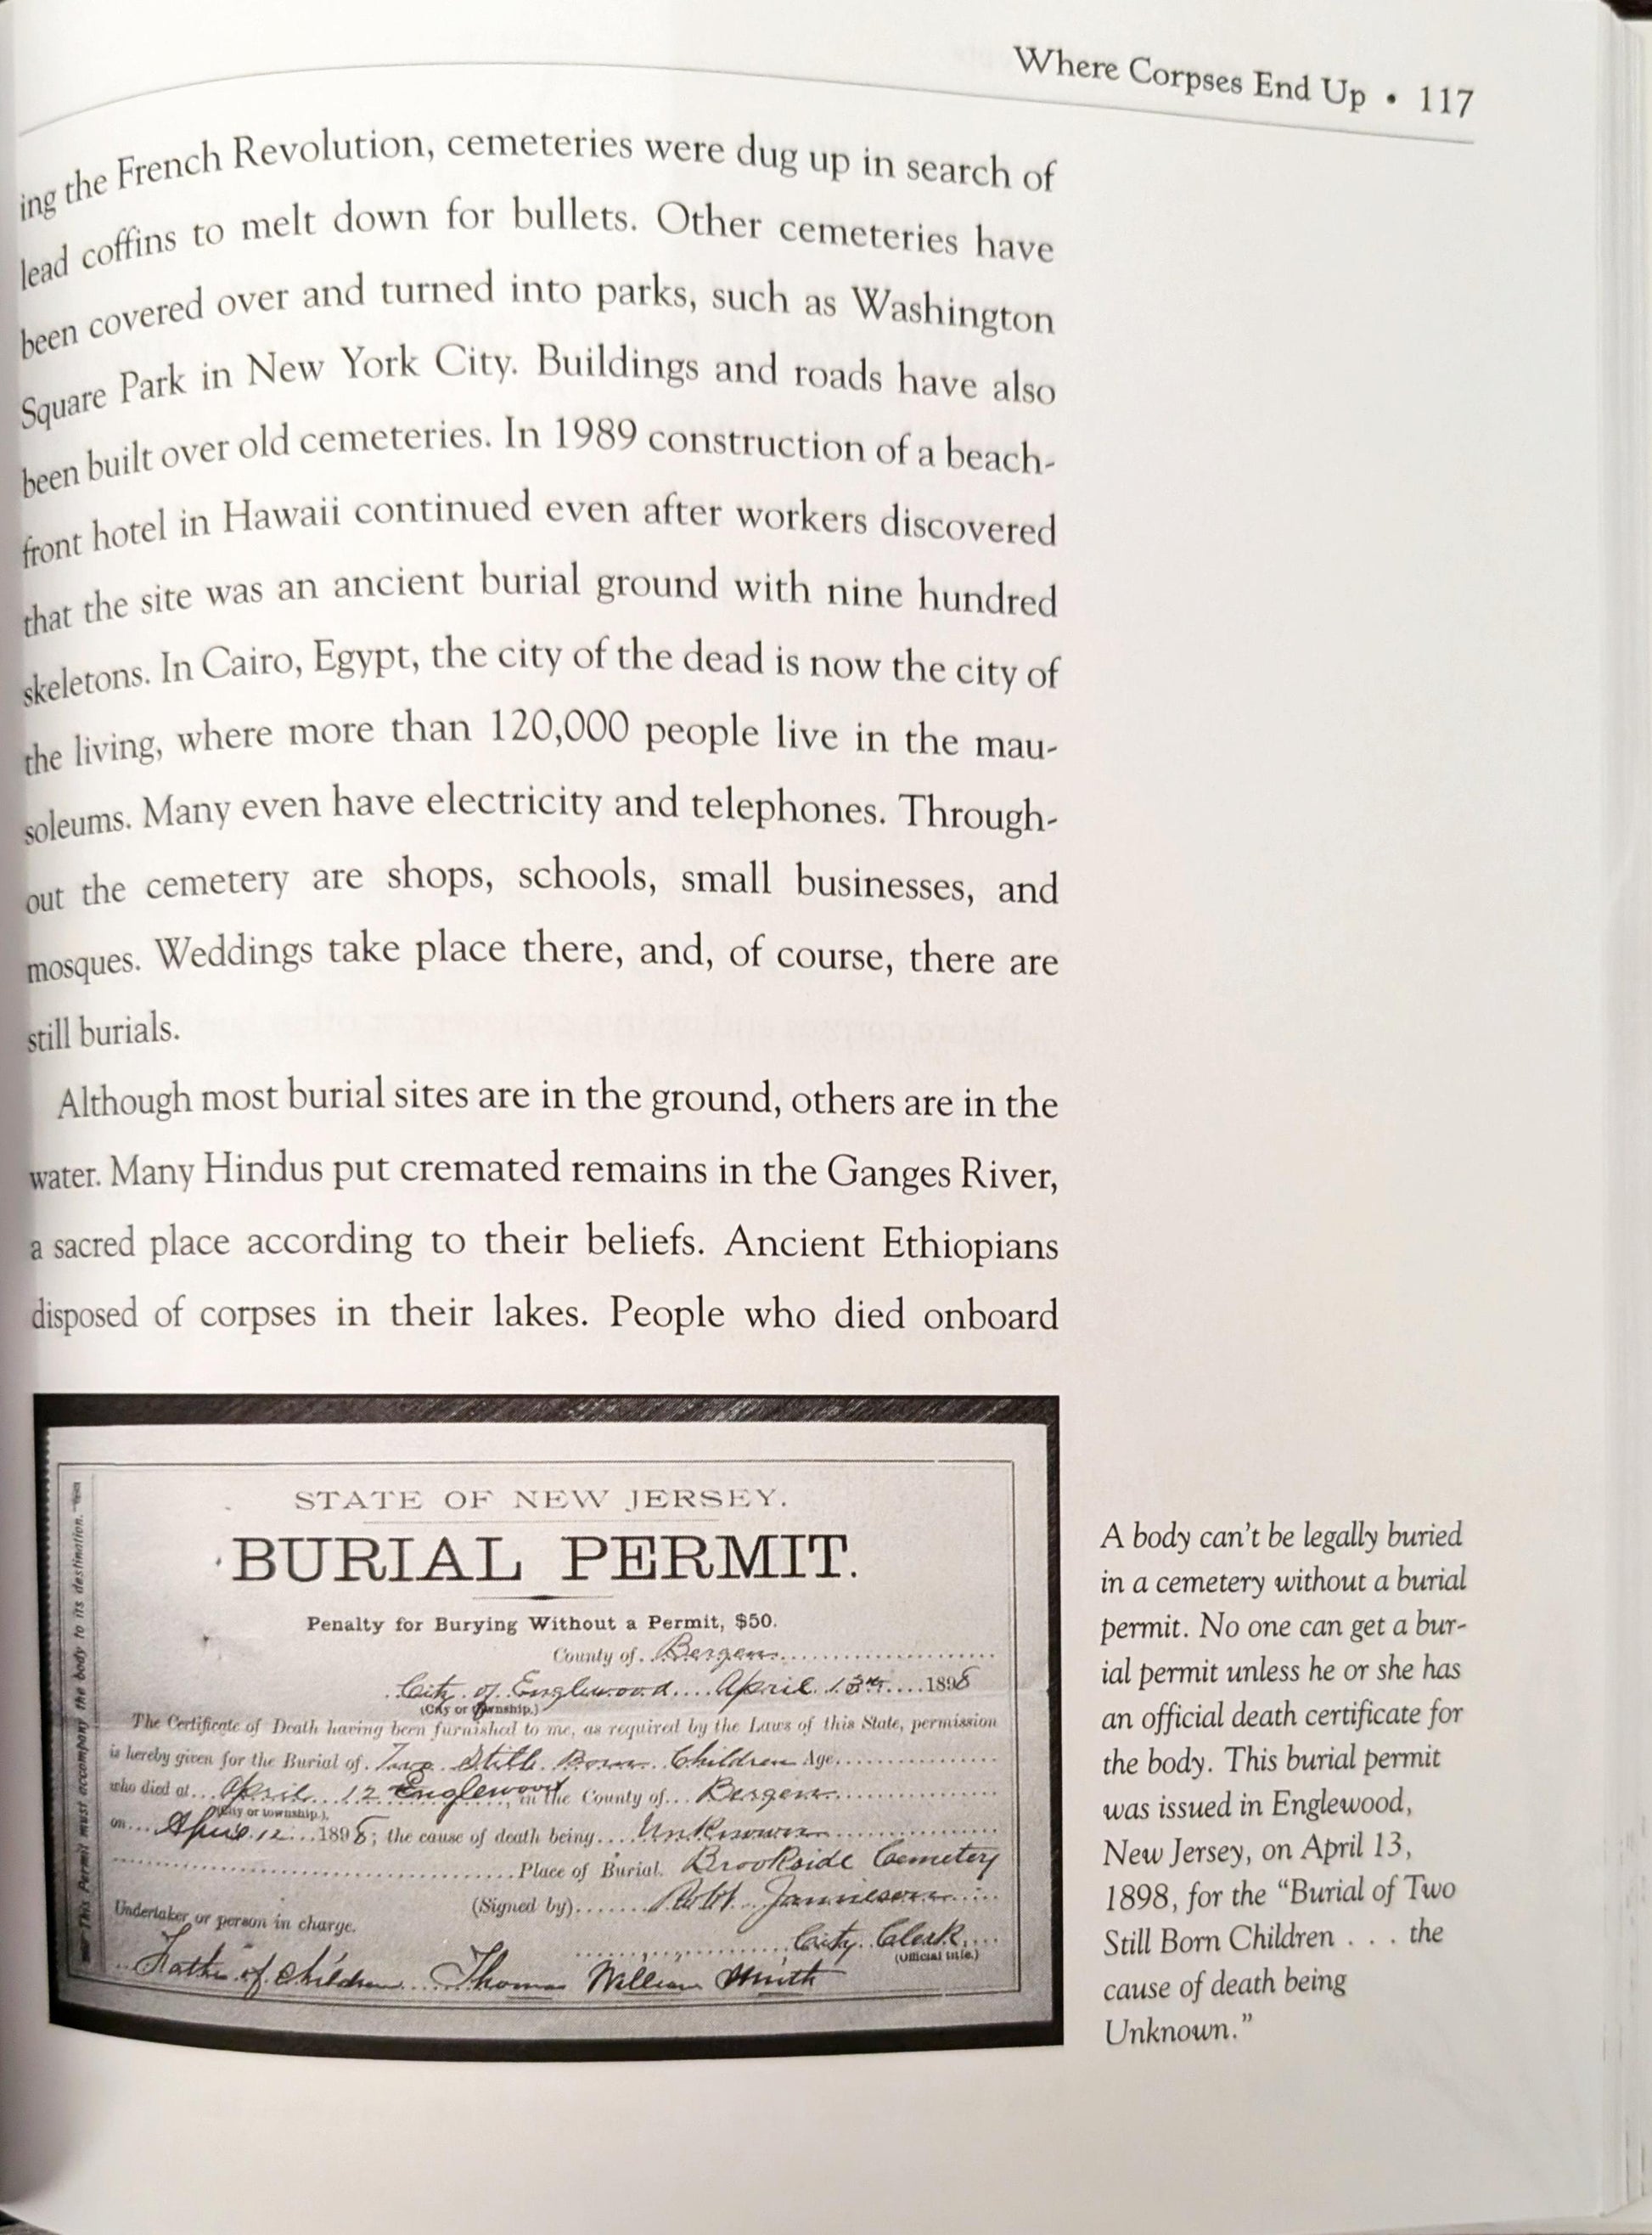 Where Corpses End Up • 117
ing the French Revolution, cemeteries were dug up in search of
lead coffins to melt down for bullets. Other cemeteries have
been covered over and turned into parks, such as Washington
Square Park in New York City. Buildings and roads have also
been built over old cemeteries. In 1989 construction of a beach-
front hotel in Hawaii continued even after workers discovered
that the site was an ancient burial ground with nine hundred
skeletons. In Cairo, Egypt, the city of the dead is now the city of
the living, where more than 120,000 people live in the mau-
soleums. Many even have electricity and telephones. Through-
out the cemetery are shops, schools, small businesses, and
mosques. Weddings take place there, and, of course, there are
still burials.
Although most burial sites are in the ground, others are in the
water. Many Hindus put cremated remains in the Ganges River,
a sacred place according to their beliefs. Ancient Ethiopians
disposed of corpses in their lakes. People who died onboard
This Permit must accompany the body to its destination.
STATE OF NEW JERSEY.
BURIAL PERMIT.
Penalty for Burying Without a Permit, $50.
County of Bergen
City of Englewood April 13th 1898
(City or Township.)
The Certificate of Death having been furnished to me, as required by the Laws of this State, permission
is hereby given for the Burial of Two Still Born Children Age
who died at April 12 Englewood, in the County of Bergen
(City or township.)
on April 12 1898; the cause of death being Unknown
Place of Burial. Brookside Cemetery
(Signed by) Robt. Jamieson
Undertaker or person in charge.
City Clerk
(Official title.)
Father of Children Thomas William Smith
A body can't be legally buried
in a cemetery without a burial
permit. No one can get a bur-
ial permit unless he or she has
an official death certificate for
the body. This burial permit
was issued in Englewood,
New Jersey, on April 13,
1898, for the “Burial of Two
Still Born Children . . . the
cause of death being
Unknown.”